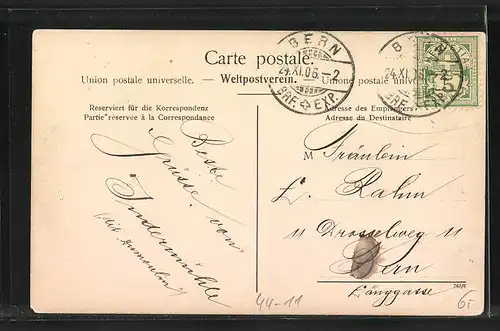 Carte postale.
Union postale universelle. — Weltpostverein. — Unione postale universale.
BERN
24.XI.06.–2
BRF. EXP.
BERN
24.XI.06.–2
BRF. EXP.
5
Reserviert für die Korrespondenz
Partie réservée à la Correspondance
Adresse des Empfängers
Adresse du Destinataire
Beste
Grüsse von
M Fräulein
L. Rahm
" Drosselweg 11
Bern
Länggasse
44-11